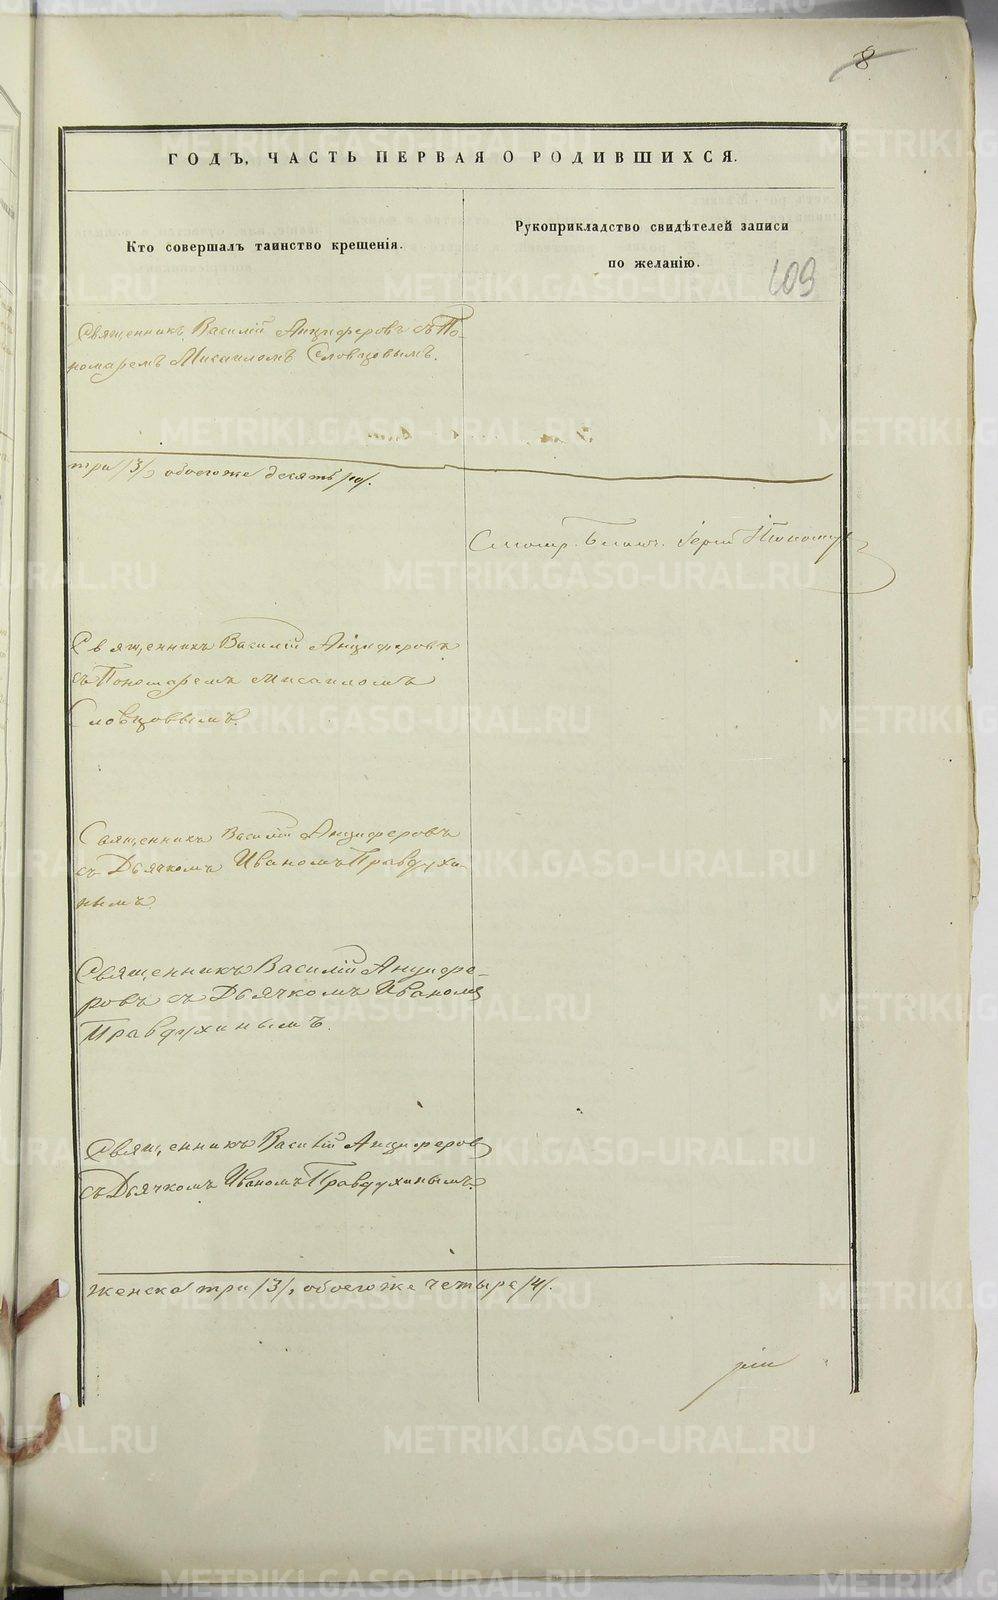 8
ГОДЪ, ЧАСТЬ ПЕРВАЯ О РОДИВШИХСЯ.
Кто совершалъ таинство крещенія.
Рукоприкладство свидѣтелей записи
по желанію.
109
Священникъ Василій Анциферовъ съ По-
номаремъ Мисаиломъ Словцовымъ.
три /3/, обоегоже десять /10/.
Священникъ Василій Анциферовъ
съ Пономаремъ Мисаиломъ
Словцовымъ.
Священникъ Василій Анциферовъ
съ Дьячкомъ Иваномъ Правдухи
нымъ.
Священникъ Василій Анцифе-
ровъ съ Дьячкомъ Иваномъ
Правдухинымъ.
Священникъ Василій Анциферовъ
съ Дьячкомъ Иваномъ Правдухинымъ.
женска три /3/, обоегоже четыре /4/.
METRIKI.GASO-URAL.RU